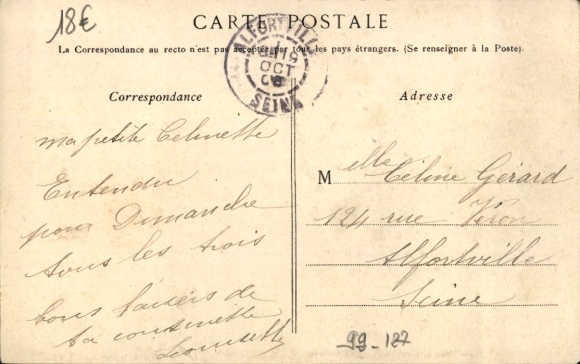 18€
CARTE POSTALE
La Correspondance au recto n'est pas acceptée par tous les pays étrangers. (Se renseigner à la Poste).
ALFORTVILLE
19
OCT
06
SEINE
Correspondance
ma petite Celinette
Entendu
pour Dimanche
tous les trois
bons baisers de
ta cousinette
Adresse
Melle Céline Gérard
124 rue Véron
Alfortville
Seine
99-187